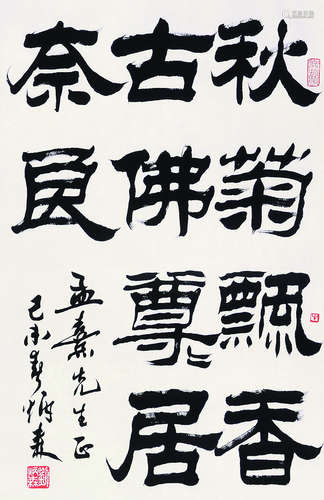 秋菊飄香
古佛尊〻居
奈良
孟先生正
己未春炳森